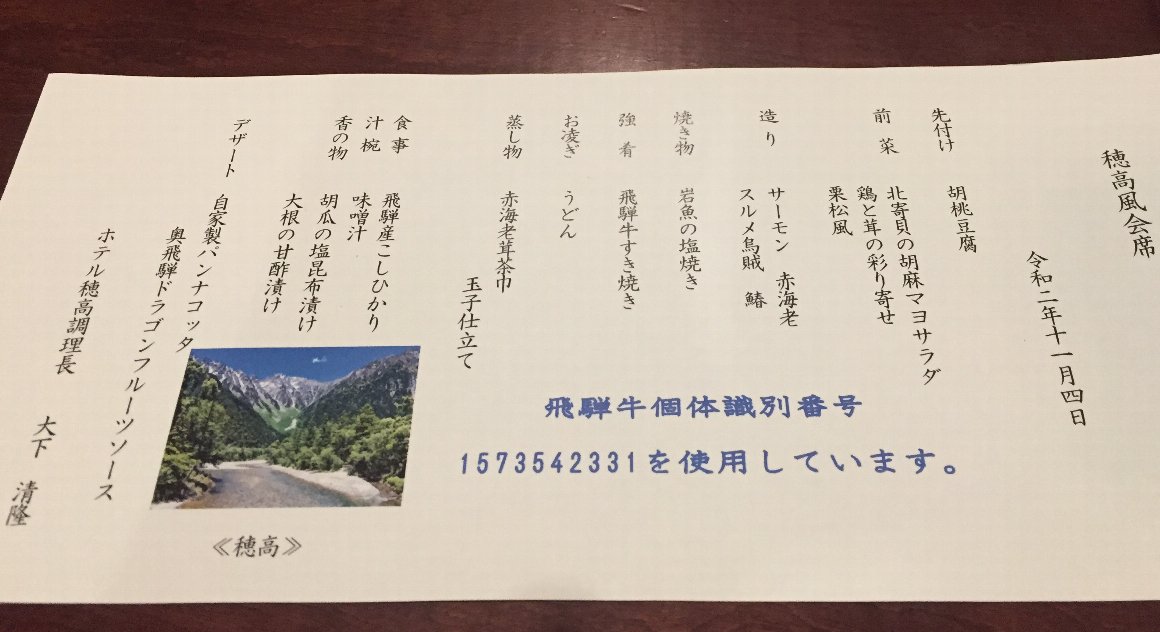 穂高風会席
令和二年十一月四日
先付け 胡桃豆腐
前菜 北寄貝の胡麻マヨサラダ
鶏と茸の彩り寄せ
栗松風
造り サーモン 赤海老
スルメ烏賊 鰆
焼き物 岩魚の塩焼き
強肴 飛騨牛すき焼き
お凌ぎ うどん
蒸し物 赤海老茸茶巾
玉子仕立て
食事 飛騨産こしひかり
汁椀 味噌汁
香の物 胡瓜の塩昆布漬け
大根の甘酢漬け
デザート 自家製パンナコッタ
奥飛騨ドラゴンフルーツソース
ホテル穂高調理長 大下 清隆
飛騨牛個体識別番号
1573542331を使用しています。
≪穂高≫